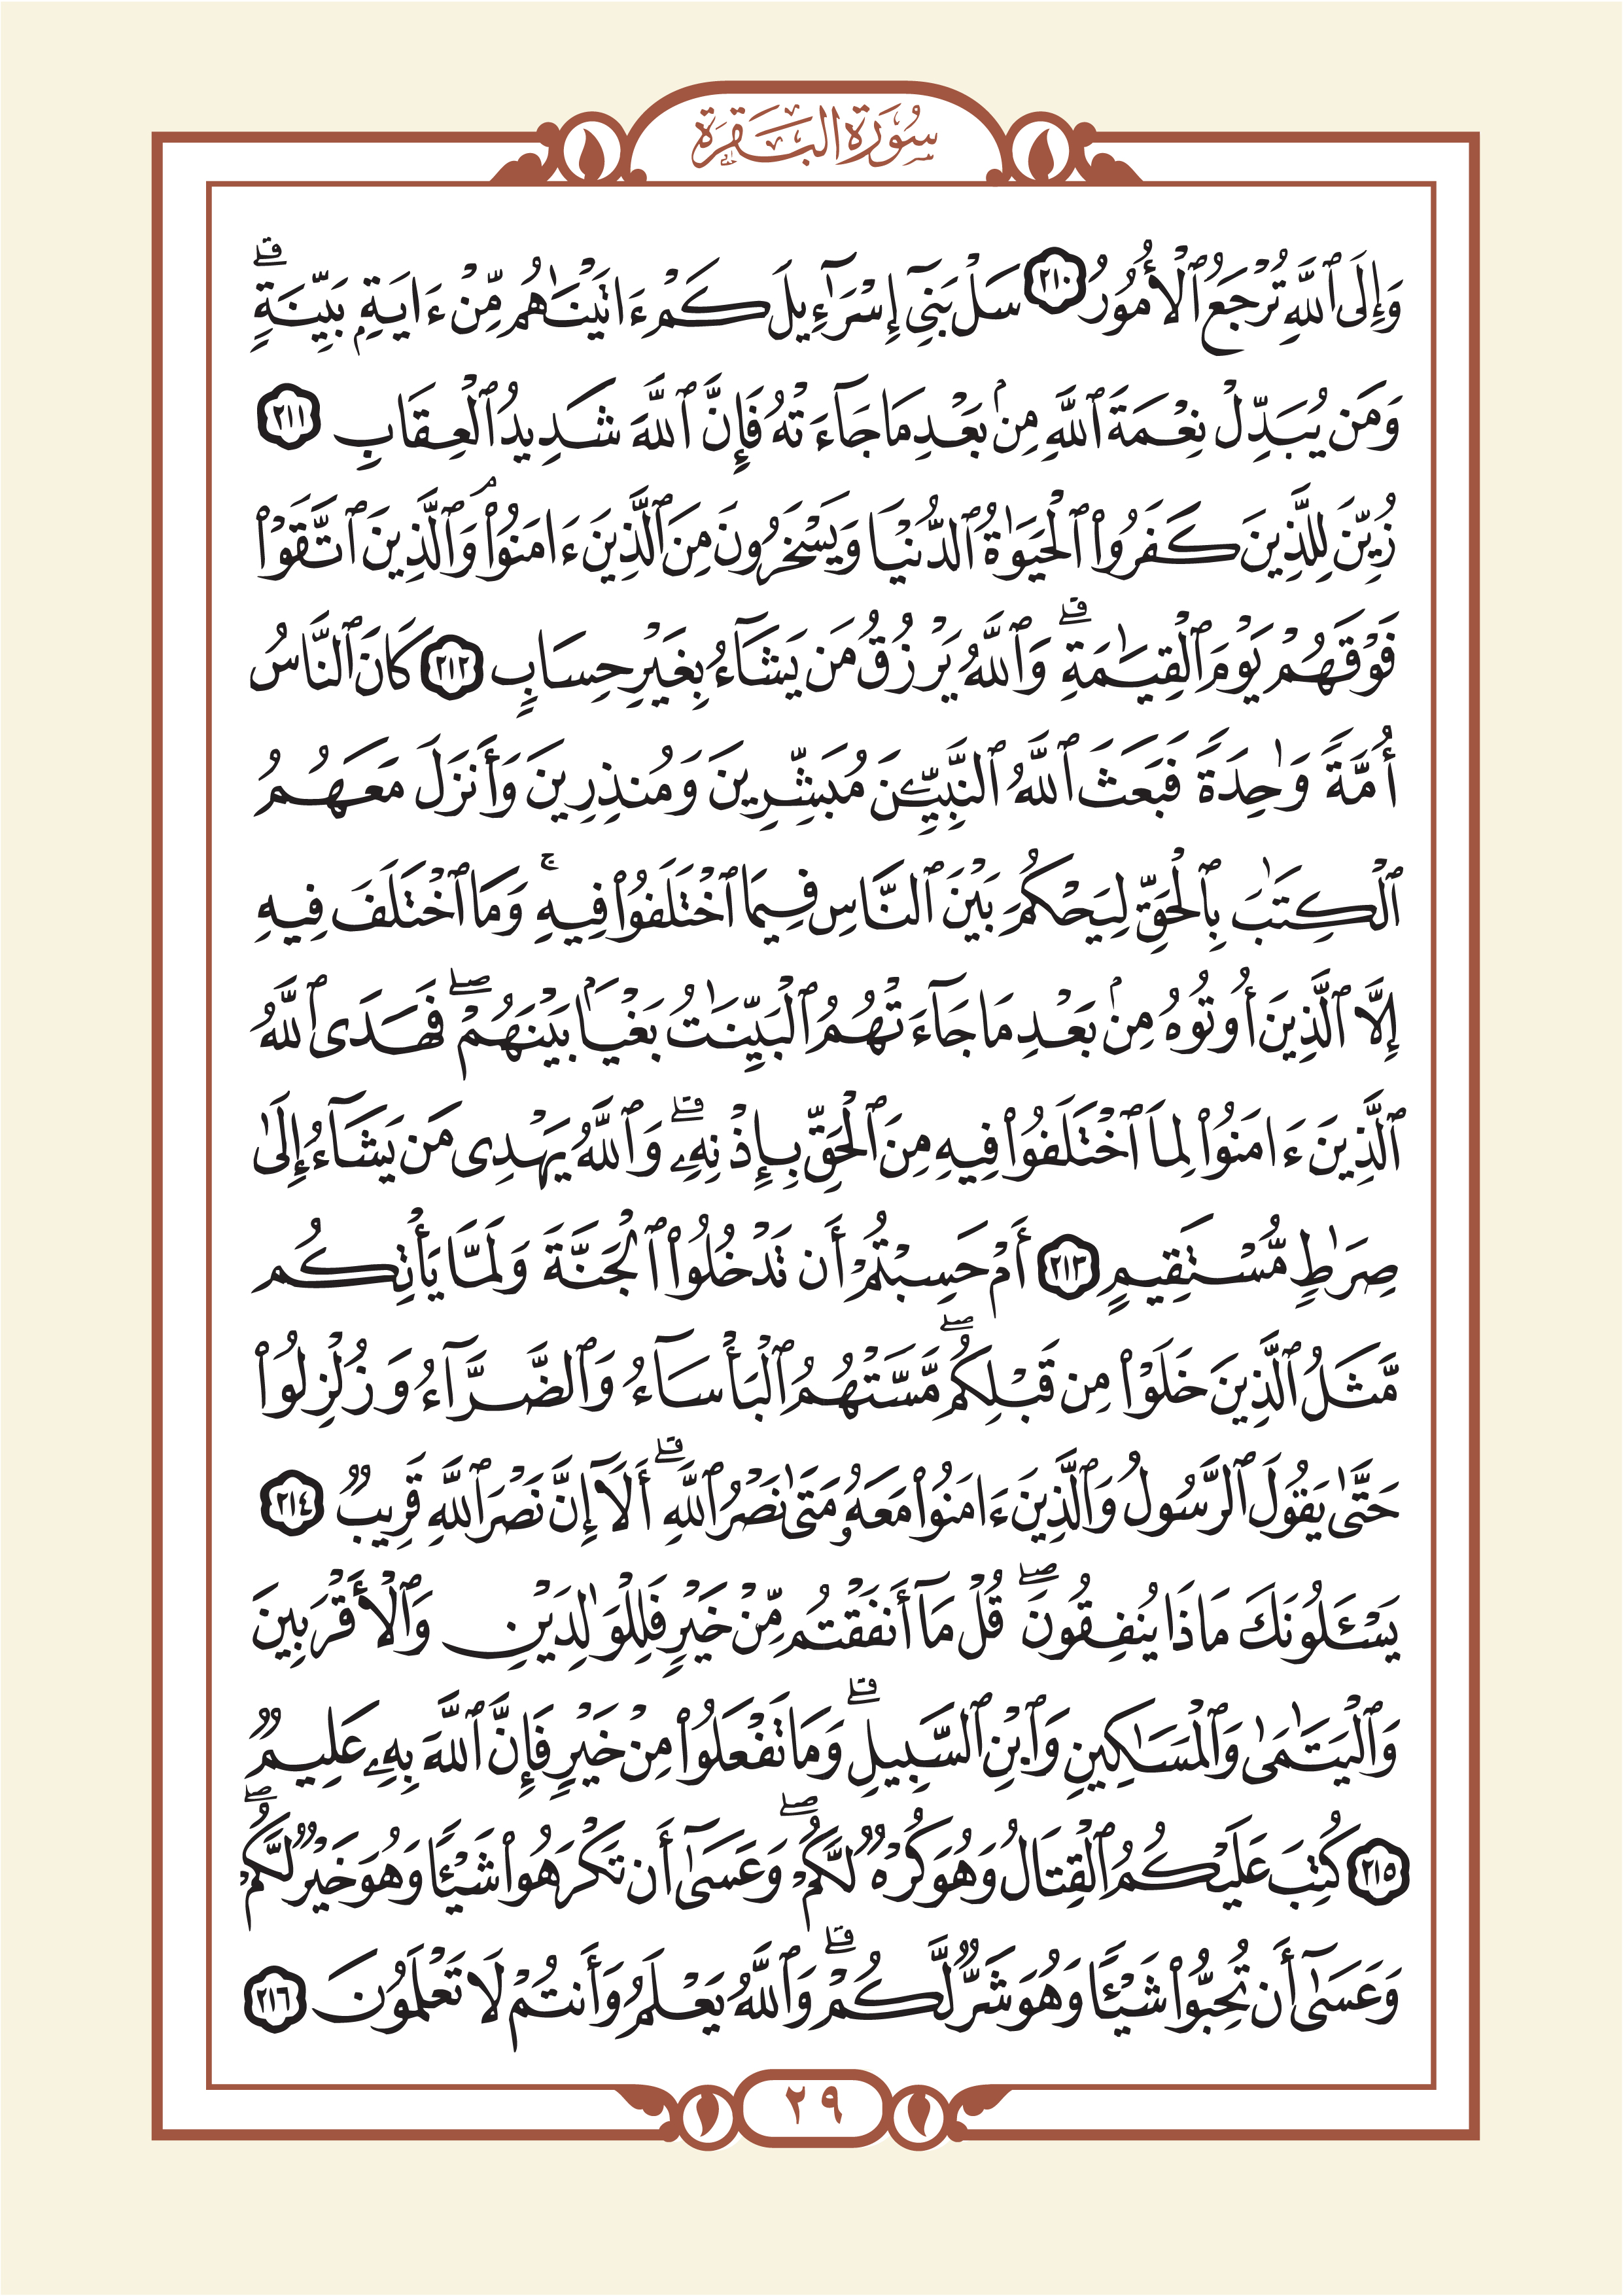 سُورَةُ الْبَقَرَةِ
وَإِلَى ٱللَّهِ تُرْجَعُ ٱلْأُمُورُ ٢١٠ سَلْ بَنِىٓ إِسْرَٰٓءِيلَ كَمْ ءَاتَيْنَٰهُم مِّنْ ءَايَةٍۭ بَيِّنَةٍۗ
وَمَن يُبَدِّلْ نِعْمَةَ ٱللَّهِ مِنۢ بَعْدِ مَا جَآءَتْهُ فَإِنَّ ٱللَّهَ شَدِيدُ ٱلْعِقَابِ ٢١١
زُيِّنَ لِلَّذِينَ كَفَرُوا۟ ٱلْحَيَوٰةُ ٱلدُّنْيَا وَيَسْخَرُونَ مِنَ ٱلَّذِينَ ءَامَنُوا۟ۘ وَٱلَّذِينَ ٱتَّقَوْا۟
فَوْقَهُمْ يَوْمَ ٱلْقِيَٰمَةِۗ وَٱللَّهُ يَرْزُقُ مَن يَشَآءُ بِغَيْرِ حِسَابٍ ٢١٢ كَانَ ٱلنَّاسُ
أُمَّةً وَٰحِدَةً فَبَعَثَ ٱللَّهُ ٱلنَّبِيِّۦنَ مُبَشِّرِينَ وَمُنذِرِينَ وَأَنزَلَ مَعَهُمُ
ٱلْكِتَٰبَ بِٱلْحَقِّ لِيَحْكُمَ بَيْنَ ٱلنَّاسِ فِيمَا ٱخْتَلَفُوا۟ فِيهِۚ وَمَا ٱخْتَلَفَ فِيهِ
إِلَّا ٱلَّذِينَ أُوتُوهُ مِنۢ بَعْدِ مَا جَآءَتْهُمُ ٱلْبَيِّنَٰتُ بَغْيَۢا بَيْنَهُمْۖ فَهَدَى ٱللَّهُ
ٱلَّذِينَ ءَامَنُوا۟ لِمَا ٱخْتَلَفُوا۟ فِيهِ مِنَ ٱلْحَقِّ بِإِذْنِهِۦۗ وَٱللَّهُ يَهْدِى مَن يَشَآءُ إِلَىٰ
صِرَٰطٍ مُّسْتَقِيمٍ ٢١٣ أَمْ حَسِبْتُمْ أَن تَدْخُلُوا۟ ٱلْجَنَّةَ وَلَمَّا يَأْتِكُم
مَّثَلُ ٱلَّذِينَ خَلَوْا۟ مِن قَبْلِكُمۖ مَّسَّتْهُمُ ٱلْبَأْسَآءُ وَٱلضَّرَّآءُ وَزُلْزِلُوا۟
حَتَّىٰ يَقُولَ ٱلرَّسُولُ وَٱلَّذِينَ ءَامَنُوا۟ مَعَهُۥ مَتَىٰ نَصْرُ ٱللَّهِۗ أَلَآ إِنَّ نَصْرَ ٱللَّهِ قَرِيبٌ ٢١٤
يَسْـَٔلُونَكَ مَاذَا يُنفِقُونَۖ قُلْ مَآ أَنفَقْتُم مِّنْ خَيْرٍ فَلِلْوَٰلِدَيْنِ وَٱلْأَقْرَبِينَ
وَٱلْيَتَٰمَىٰ وَٱلْمَسَٰكِينِ وَٱبْنِ ٱلسَّبِيلِۗ وَمَا تَفْعَلُوا۟ مِنْ خَيْرٍ فَإِنَّ ٱللَّهَ بِهِۦ عَلِيمٌ
٢١٥ كُتِبَ عَلَيْكُمُ ٱلْقِتَالُ وَهُوَ كُرْهٌ لَّكُمْۖ وَعَسَىٰٓ أَن تَكْرَهُوا۟ شَيْـًٔا وَهُوَ خَيْرٌ لَّكُمْۖ
وَعَسَىٰٓ أَن تُحِبُّوا۟ شَيْـًٔا وَهُوَ شَرٌّ لَّكُمْۗ وَٱللَّهُ يَعْلَمُ وَأَنتُمْ لَا تَعْلَمُونَ ٢١٦
٢٩